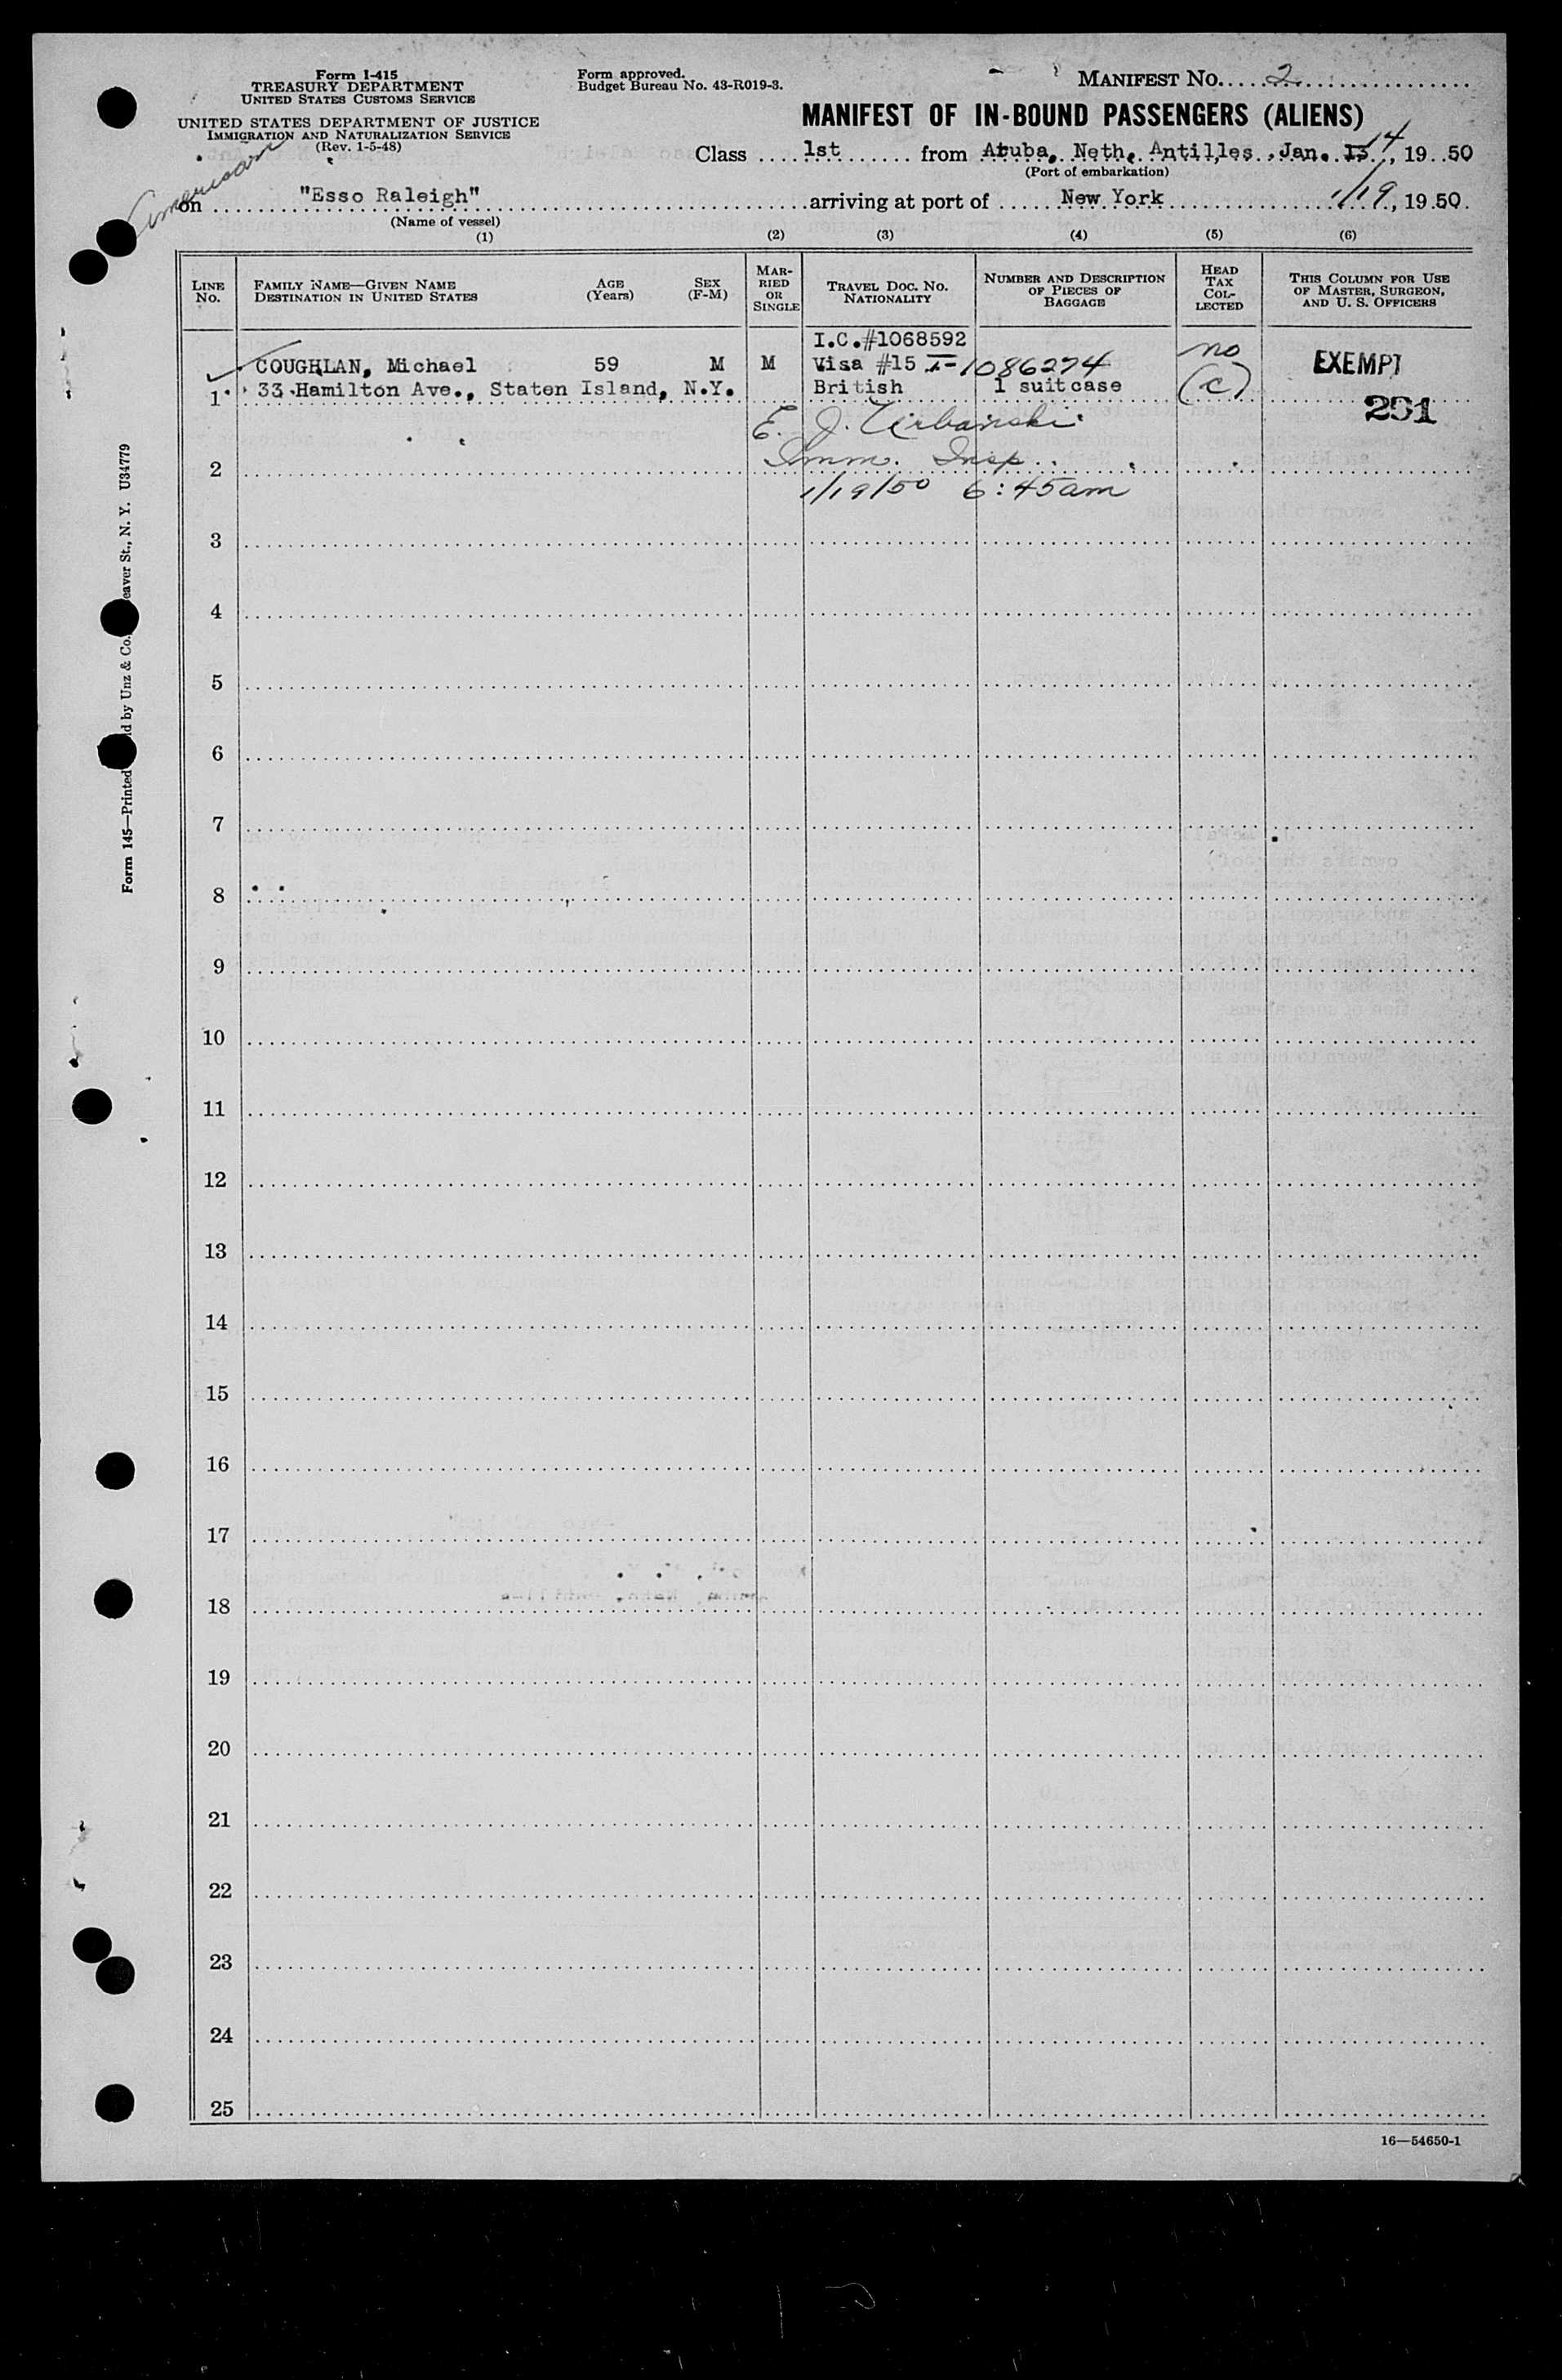 Form I-415
TREASURY DEPARTMENT
UNITED STATES CUSTOMS SERVICE
UNITED STATES DEPARTMENT OF JUSTICE
IMMIGRATION AND NATURALIZATION SERVICE
(Rev. 1-5-48)
Form approved.
Budget Bureau No. 43-R019-3.
MANIFEST NO. 2
MANIFEST OF IN-BOUND PASSENGERS (ALIENS)
Class 1st from Aruba, Neth. Antilles, Jan. 14, 1950
(Port of embarkation)
American
on "Esso Raleigh" arriving at port of New York 1/19, 1950.
(Name of vessel)
(1) (2) (3) (4) (5) (6)
LINE No.
FAMILY NAME—GIVEN NAME
DESTINATION IN UNITED STATES
AGE (Years)
SEX (F-M)
MARRIED OR SINGLE
TRAVEL DOC. NO. NATIONALITY
NUMBER AND DESCRIPTION OF PIECES OF BAGGAGE
HEAD TAX COLLECTED
THIS COLUMN FOR USE OF MASTER, SURGEON, AND U. S. OFFICERS
I.C.#1068592
COUGHLAN, Michael 59 M M Visa #15 I-1086274 no EXEMPT
1 33 Hamilton Ave., Staten Island, N.Y. British 1 suitcase (c)
291
E. J. Urbanski
2 Imm. Insp.
1/19/50 6:45am
3
4
5
6
7
8
9
10
11
12
13
14
15
16
17
18
19
20
21
22
23
24
25
16—54650-1
Form 145—Printed d by Unz & Co. eaver St., N. Y. U34779